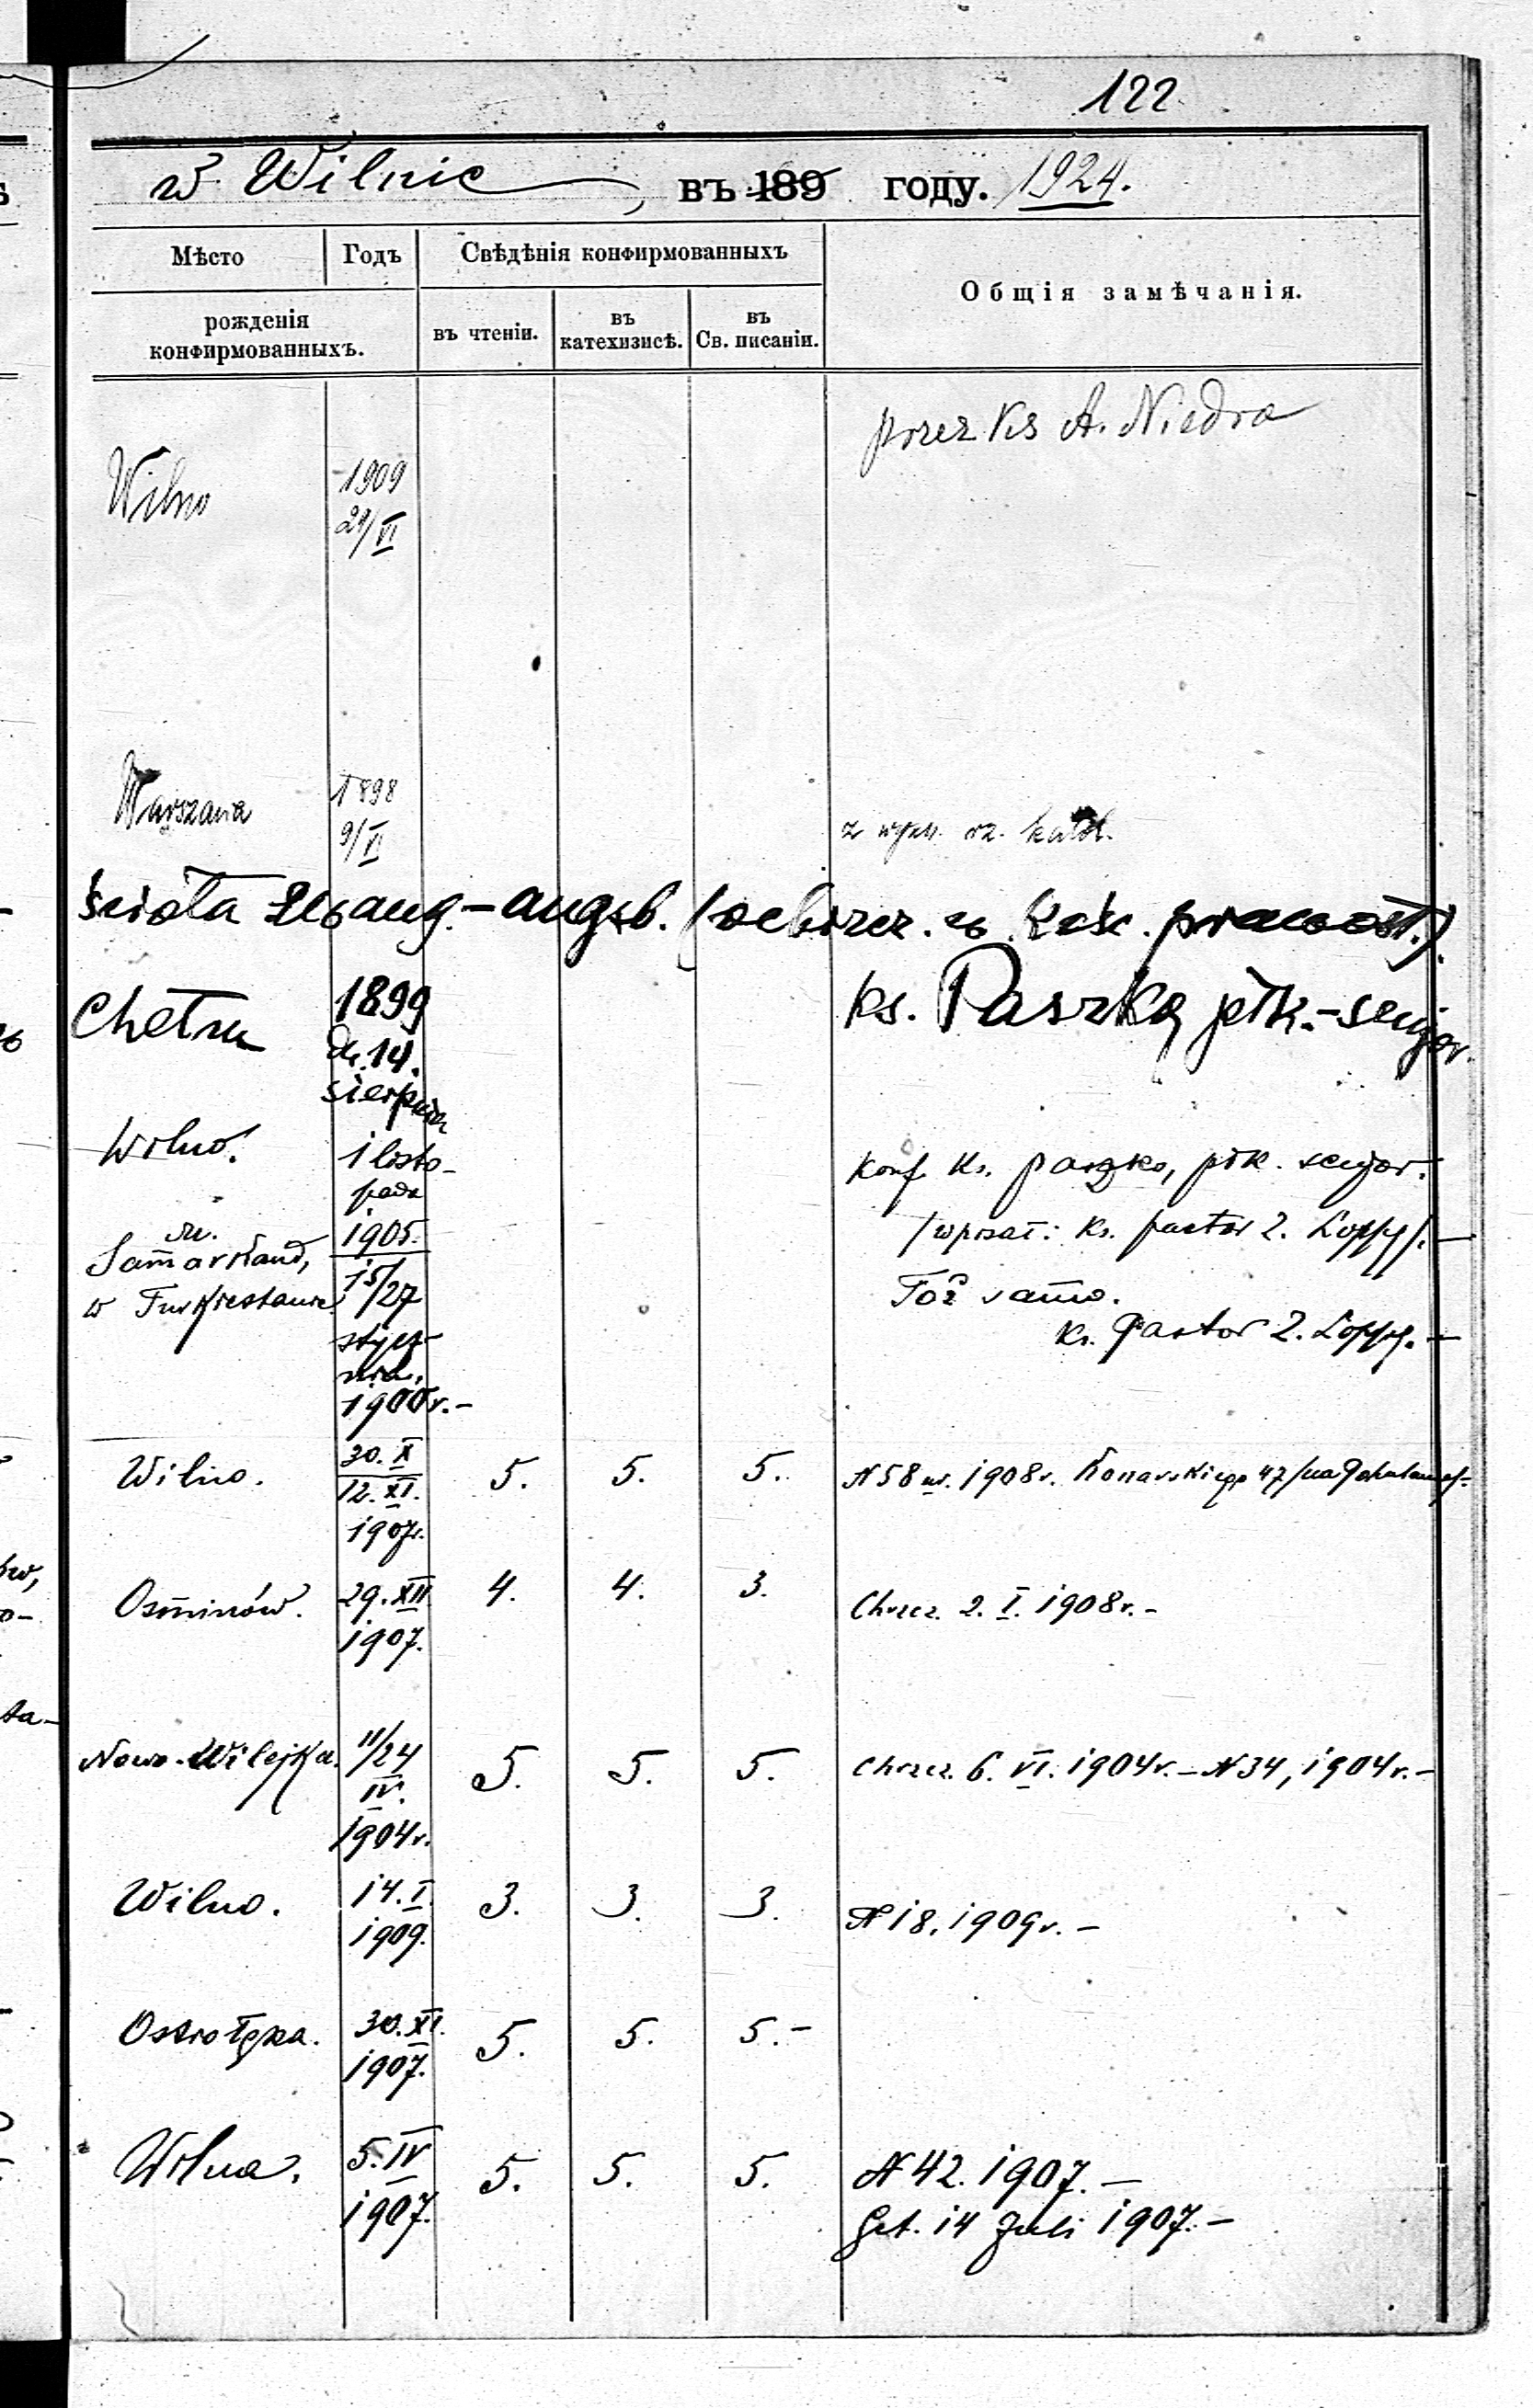 122
w Wilnie, въ 189 году. 1924.
Мѣсто Годъ Свѣдѣнія конфирмованныхъ
Общія замѣчанія.
рожденія
конфирмованныхъ.
въ чтеніи. въ катехизисѣ. въ Св. писаніи.
przez Ks A. Niedra
Wilno 1909
29/VI
Warszawa 1898
9/VI z wyzn. rz. katol.
ścioła Ewang.-augsb. (ochrzcz. w Kośc. prawosł.).
Chełm 1899 ks. Paszko płk.-senjor.
d. 14.
sierpnia
Wilno. 1 listo- Konf. Ks. Paszko, płk. senjor.
pada
1905. /wpisał: Ks. pastor Z. Loppe/.—
m.
Samarkand, 15/27 Toż samo.
w Turkiestanie. Ks. Pastor Z. Loppe.—
stycz-
nia,
1900 r.-
Wilno. 30. X 5. 5. 5. N 58 w. 1908 r. Konarskiego 47
12. XI.
1907 r.
Osminów. 29. XII 4. 4. 3. Chrzcz. 2. I. 1908 r.-
1907.
Nowo-Wilejka. 11/24 5. 5. 5. Chrzcz. 6. VI. 1904 r.- N 34, 1904 r.-
IV.
1904 r.
Wilno. 14. I. 3. 3. 3. N 18. 1909 r.-
1909.
Ostrołęka. 30. XI. 5. 5. 5.-
1907.
Wilna. 5. IV 5. 5. 5. N 42. 1907.-
1907. Get. 14 Juli 1907.-